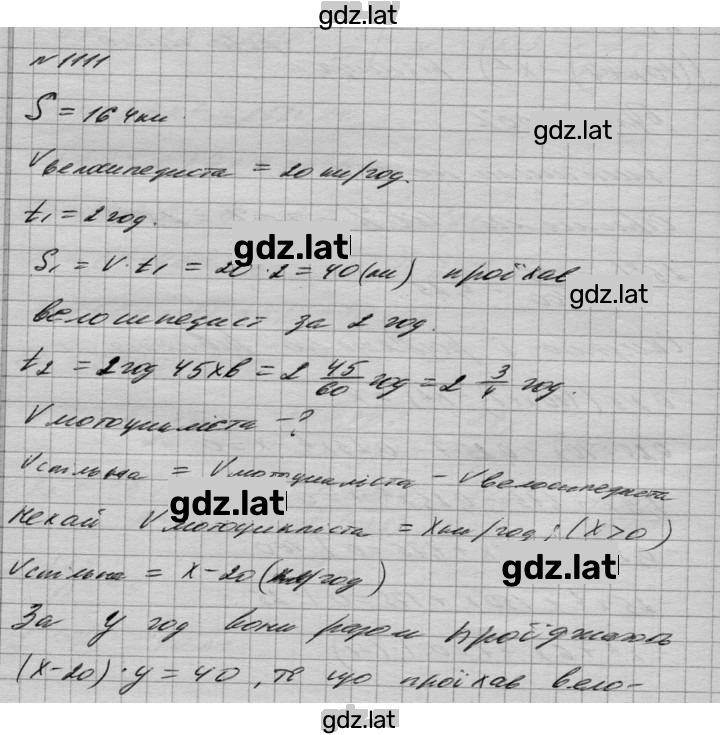 gdz.lat
№ 1111
S = 164 км
gdz.lat
Vвелосипедиста = 20 км/год.
t₁ = 2 год.
gdz.lat
S₁ = V · t₁ = 20 · 2 = 40 (км) проїхав
gdz.lat
велосипедист за 2 год.
t₂ = 2 год 45 хв = 2 45/60 год = 2 3/4 год.
V мотоцикліста - ?
Vспільна = Vмотоцикліста - Vвелосипедиста
gdz.lat
Нехай Vмотоцикліста = x км/год; (x > 0)
Vспільна = x - 20 (км/год)
gdz.lat
За y год вони разом проїджають
(x - 20) · y = 40, те що проїхав вело-
gdz.lat